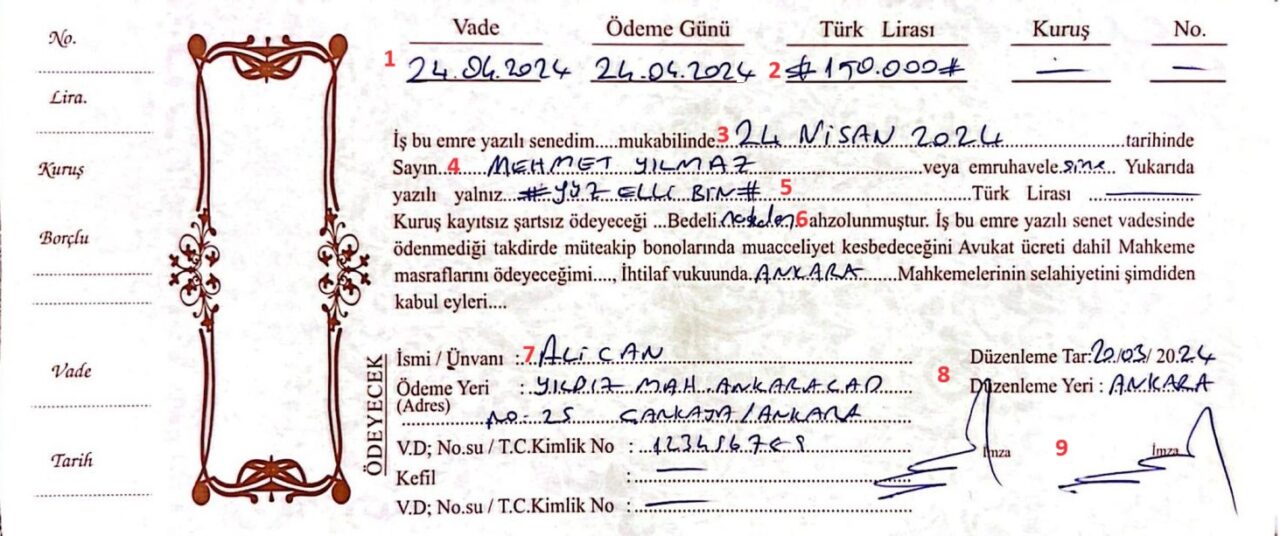 No.
Lira.
Kuruş
Borçlu
Vade
Tarih
Vade Ödeme Günü Türk Lirası Kuruş No.
1 24.04.2024 24.04.2024 2 #150.000# — —
İş bu emre yazılı senedim.....mukabilinde 3 24 NİSAN 2024 tarihinde
Sayın. 4 MEHMET YILMAZ veya emruhavele.sine.. Yukarıda
yazılı yalnız #YÜZ ELLİ BİN# 5 Türk Lirası
Kuruş kayıtsız şartsız ödeyeceği ...Bedeli nakden 6 ahzolunmuştur. İş bu emre yazılı senet vadesinde
ödenmediği takdirde müteakip bonolarında muacceliyet kesbedeceğini Avukat ücreti dahil Mahkeme
masraflarını ödeyeceğimi...., İhtilaf vukuunda ANKARA Mahkemelerinin selahiyetini şimdiden
kabul eyleri....
ÖDEYECEK
İsmi / Ünvanı : 7 ALİ CAN
Ödeme Yeri : YILDIZ MAH. ANKARA CAD
(Adres) NO: 25 ÇANKAYA/ANKARA
V.D; No.su / T.C.Kimlik No :
Kefil : —
V.D; No.su / T.C.Kimlik No : —
8
Düzenleme Tar: 20/03/ 2024
Düzenleme Yeri : ANKARA
İmza 9 İmza